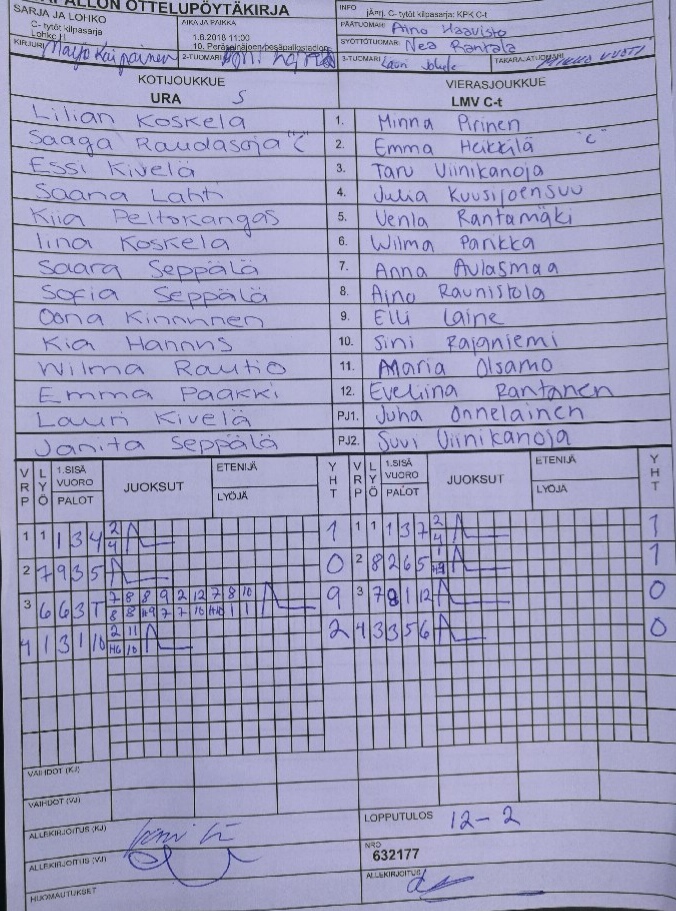 PALLON OTTELUPÖYTÄKIRJA
SARJA JA LOHKO
C- tytöt kilpasarja
Lohko II
AIKA JA PAIKKA
1.8.2018 11:00
10. Peräseinäjoen pesäpallostadion
INFO
järj. C- tytöt kilpasarja: KPK C-t
PÄÄTUOMARI Aino Haavisto
SYÖTTÖTUOMARI Nea Rantala
KIRJURI Marjo Kaipainen
2-TUOMARI
3-TUOMARI Lauri
TAKARAJATUOMARI
KOTIJOUKKUE
URA S
VIERASJOUKKUE
LMV C-t
Lilian Koskela 1. Minna Pirinen
Saaga Raudasoja "C" 2. Emma Heikkilä "C"
Essi Kivelä 3. Taru Viinikanoja
Saana Lahti 4. Julia Kuusijoensuu
Kiia Peltokangas 5. Venla Rantamäki
Iina Koskela 6. Wilma Parikka
Saara Seppälä 7. Anna Aulasmaa
Sofia Seppälä 8. Aino Raunistola
Oona Kinnunen 9. Elli Laine
Kia Hannus 10. Sini Rajaniemi
Wilma Rautio 11. Maria Olsamo
Emma Paakki 12. Eveliina Rantanen
Lauri Kivelä PJ1. Juha Onnelainen
Janita Seppälä PJ2. Suvi Viinikanoja
VRP LYÖ 1.SISÄ VUORO PALOT JUOKSUT ETENIJÄ LYÖJÄ YHT VRP LYÖ 1.SISÄ VUORO PALOT JUOKSUT ETENIJÄ LYÖJÄ YHT
1 1 1 3 4 2/4 1 1 1 1 3 7 2/4 1
2 7 9 3 5 0 2 8 2 6 5 1
3 6 6 3 T 7 8 8 9 2 12 7 8 10 9 3 7 1 12 0
8 8 H9 7 7 10 H10 1 1
4 1 3 1 10 2 11 2 4 3 3 5 6 0
H6 10
VAIHDOT (KJ)
VAIHDOT (VJ)
ALLEKIRJOITUS (KJ)
LOPPUTULOS 12-2
ALLEKIRJOITUS (VJ)
NRO
632177
HUOMAUTUKSET
ALLEKIRJOITUS